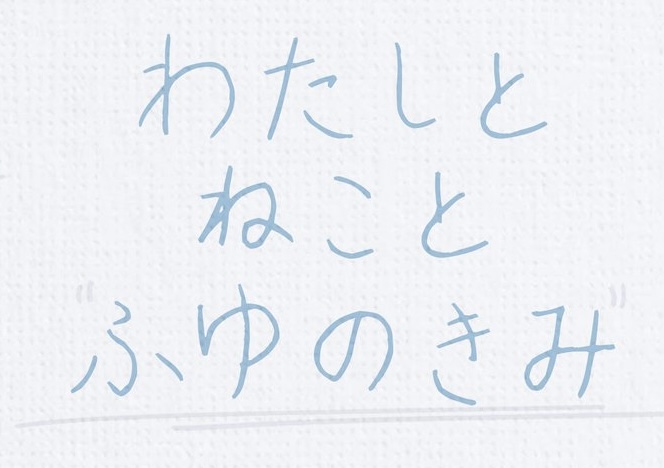 わたしと
ねこと
"ふゆのきみ"